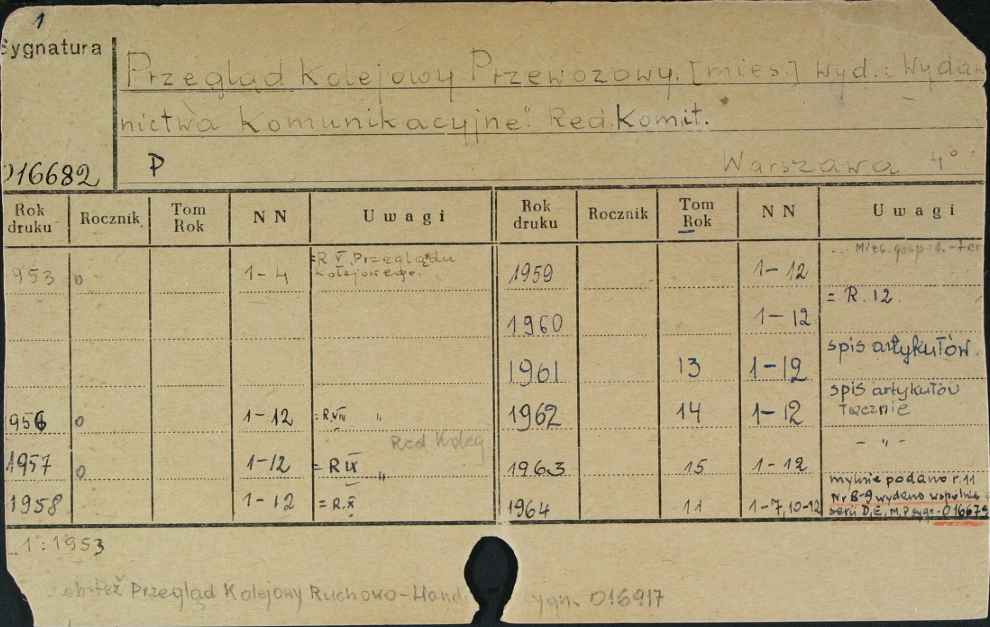 1
Sygnatura
Przegląd Kolejowy Przewozowy. [mies.] wyd.: Wydaw
nictwa Komunikacyjne". Red. Komit.
016682 P Warszawa 4°
Rok druku Rocznik Tom Rok NN Uwagi Rok druku Rocznik Tom Rok NN Uwagi
953 0 1-4 =R V. Przeglądu Kolejowego. 1959 1-12
1960 1-12 = R. 12.
1961 13 1-12 spis artykułów.
956 0 1-12 =R.VIII " 1962 14 1-12 spis artykułów łącznie
Red Koleg
1957 0 1-12 = R IX " 1963 15 1-12 - " -
1958 1-12 =R.X 1964 11 1-7, 10-12 mylnie podano r. 11
Nr 8-9 wydano wspólnie
serii D, E, M, P sygn. 016679
1: 1953
Przegląd Kolejowy Ruchowo-Hand sygn. 016917